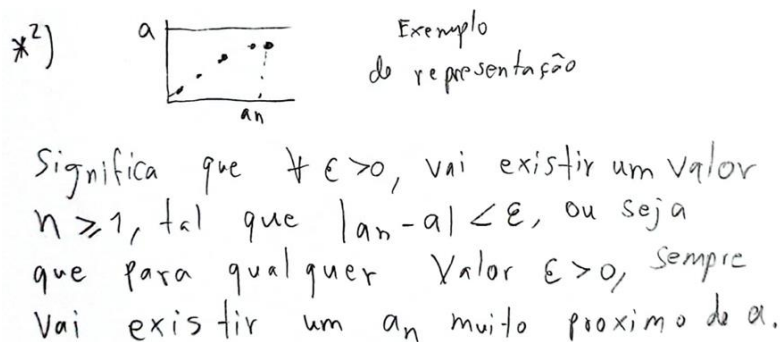 *²)
a
an
Exemplo
de representação
Significa que ∀ ε>0, vai existir um valor
n⩾1, tal que |an-a|<ε, ou seja
que para qualquer valor ε>0, sempre
vai existir um an muito proximo de a.